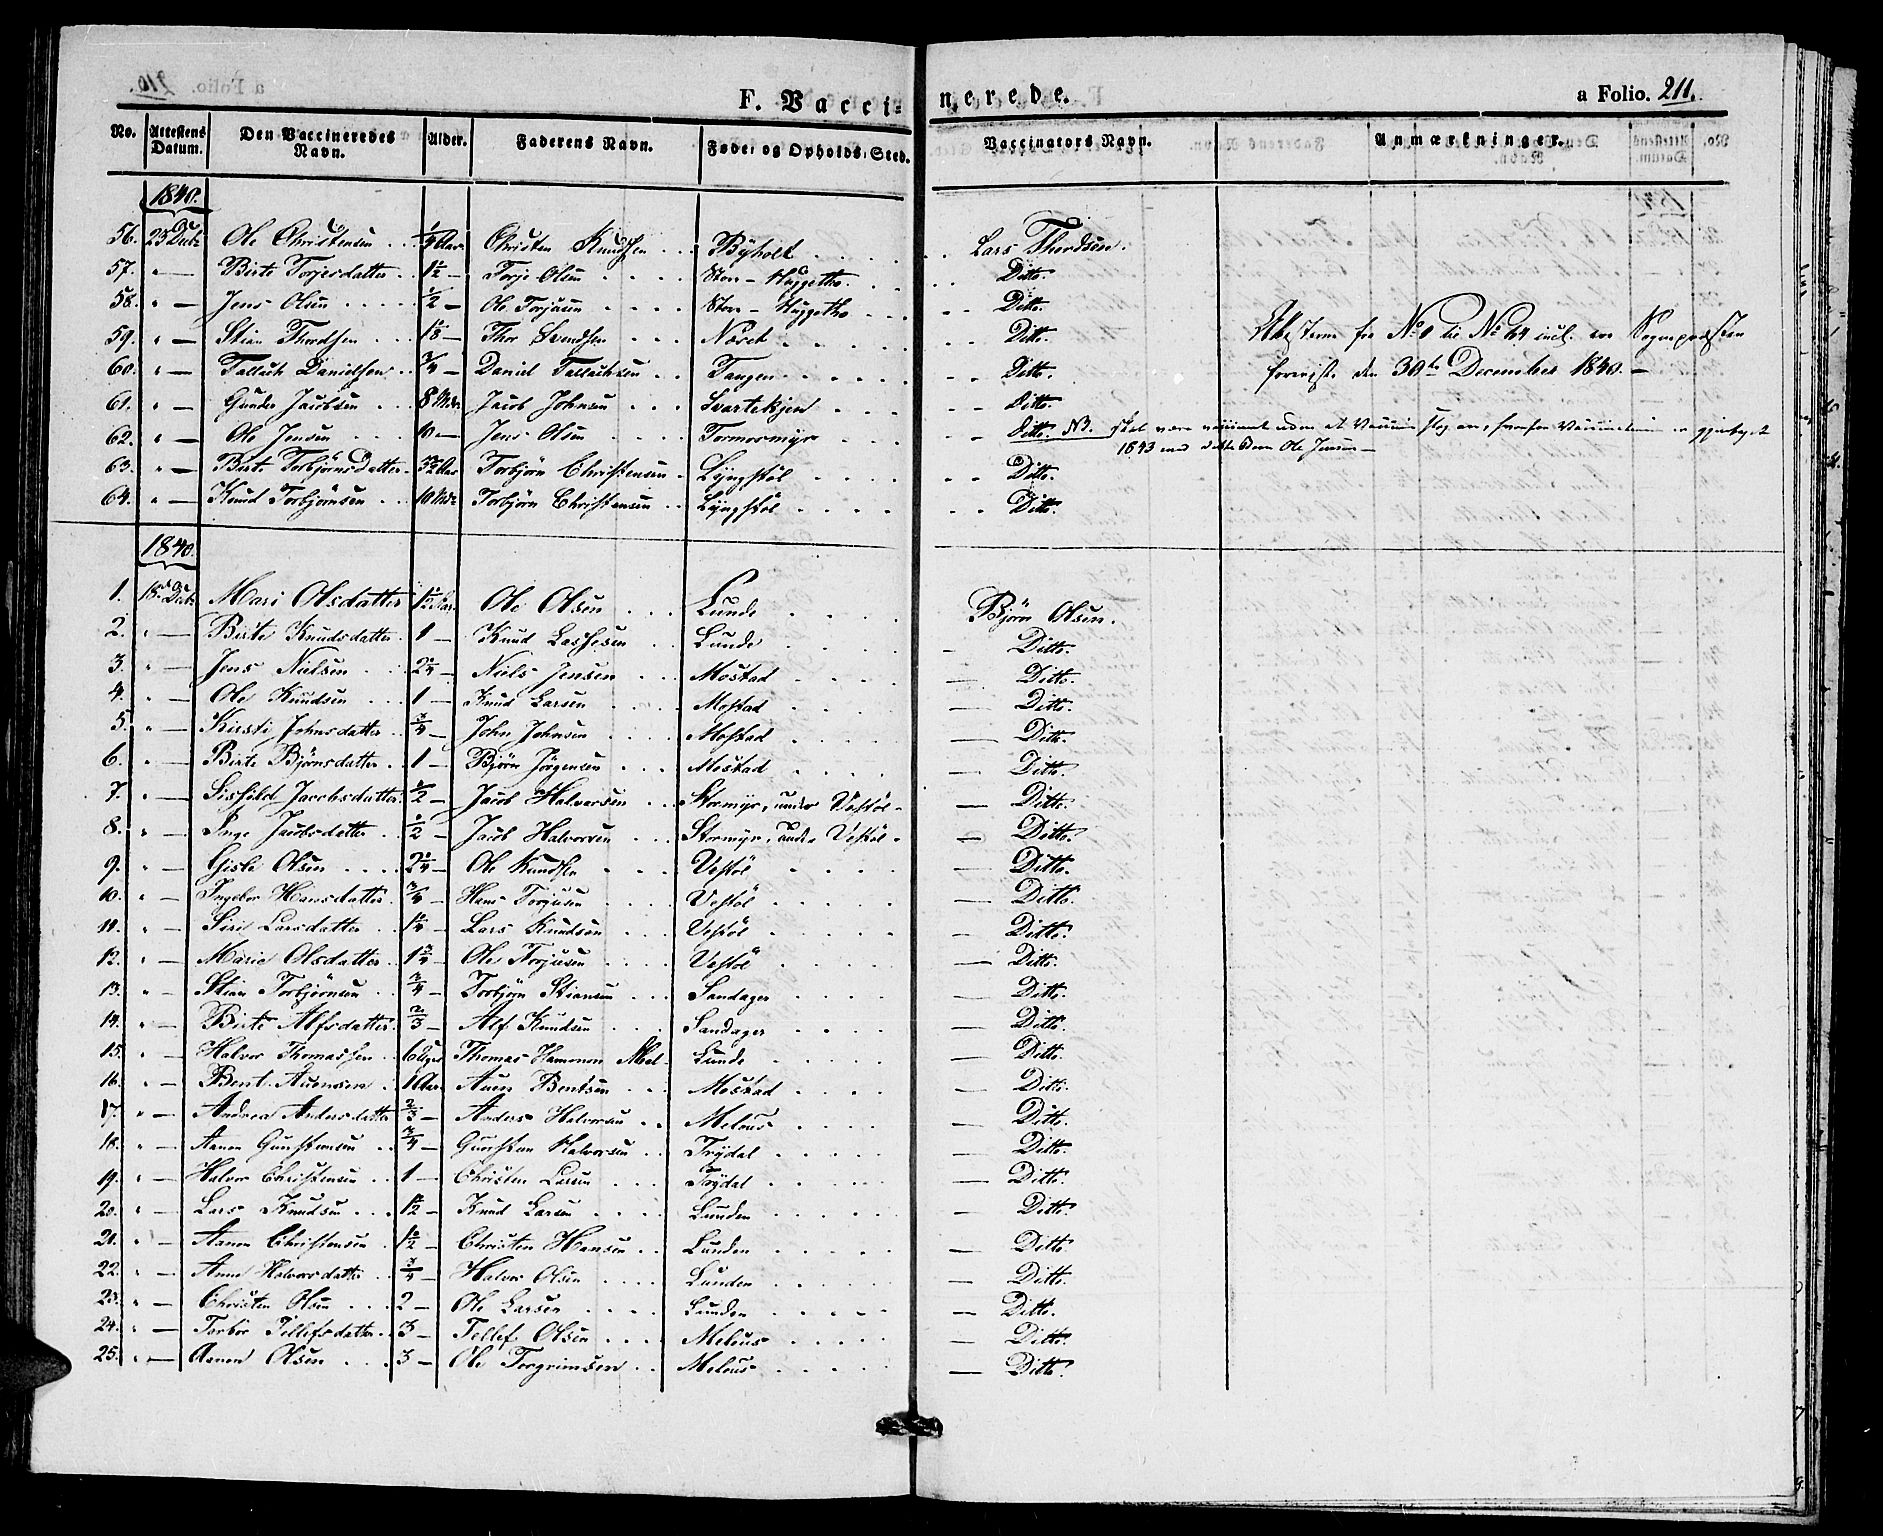 F. Vacci- nerede. a Folio. 211.
No. Attestens Datum. Den Vaccineredes Navn. Alder. Faderens Navn. Føde- og Opholds-Sted. Vaccinators Navn. Anmærkninger.
1840.
56. 23 Ole Christensen Christen Knudsen Byholt Lars Thordsen.
57. " — Birte Torjersdatter 1½ — Torje Olsen Ditto.
58. " — Jens Olsen ½ — Ole Torjusen Ditto.
59. " — Stian Thordsen Svendsen Næset Ditto.
fra No 1 til No 64 incl. Sognepræsten
60. " — Tallach Danielsen ¾ — Daniel Tallachsen Tangen Ditto.
foreviste den 30te December 1840. —
61. " — Gunder Jacobsen 8 Mdr Jacob Johnsen Svartekjen Ditto.
62. " — Ole Jensen 10 — Jens Olsen Tormorsmyr Ditto. NB. skal være
1843 med dette Barn Ole Jensen —
63. " — Birte Torbjörnsdatter Torbjörn Christensen Lyngstöl Ditto.
64. " — Knud Torbjörnsen 10 Mdr Torbjörn Christensen Lyngstöl Ditto.
1840.
1. 18 Mari Olsdatter Ole Olsen Lunde Björn Olsen.
2. " — Birte Knudsdatter 1 — Knud Lunde — Ditto.
3. " — Jens Nielsen 2¼ — Niels Jensen Mostad — Ditto.
4. " — Ole Knudsen 1 — Knud Larsen Mostad — Ditto.
5. " — Kirsti Johnsdatter ¾ — John Johnsen Mostad — Ditto.
6. " — Birte Björnsdatter 1 — Björn Jörgensen Mostad — Ditto.
7. " — Jacobsdatter ½ — Jacob Halvorsen Stormyr, under Vestöl — Ditto.
8. " — Inge Jacobsdatter ½ — Jacob Halvorsen Stormyr, under Vestöl — Ditto.
9. " — Olsen 2¼ — Ole Knudsen Vestöl — Ditto.
10. " — Ingebor Hansdatter ¾ — Hans Torjusen Vestöl — Ditto.
11. " — Siri Larsdatter 1¼ — Lars Knudsen Vestöl — Ditto.
12. " — Marie Olsdatter 1¾ — Ole Torjusen Vestöl — Ditto.
13. " — Stian Torbjörnsen ¾ — Torbjörn Stiansen Sandager — Ditto.
14. " — Birte Alfsdatter ⅔ — Alf Knudsen Sandager — Ditto.
15. " — Halvor Thomassen 6 Uger Thomas Lunde — Ditto.
16. " — Bent Auensen 1 Aar Auen Bentsen Mostad — Ditto.
17. " — Andrea Andersdatter ⅔ — Anders Halvorsen Melous — Ditto.
18. " — Aanon Gunstensen ¾ — Gunsten Halvorsen Trydal — Ditto.
19. " — Halvor Christensen 1 — Christen Larsen Trydal — Ditto.
20. " — Lars Knudsen 1½ — Knud Larsen Lunden — Ditto.
21. " — Aanon Christensen 1½ — Christen Hansen Lunden — Ditto.
22. " — Anne Halvorsdatter ¾ — Halvor Olsen Lunden — Ditto.
23. " — Christen Olsen 2 — Ole Larsen Lunden — Ditto.
24. " — Torbör Tellefsdatter 3 — Tellef Olsen Melous — Ditto.
25. " — Aanon Olsen 3 — Ole Torgrimsen Melous — Ditto.